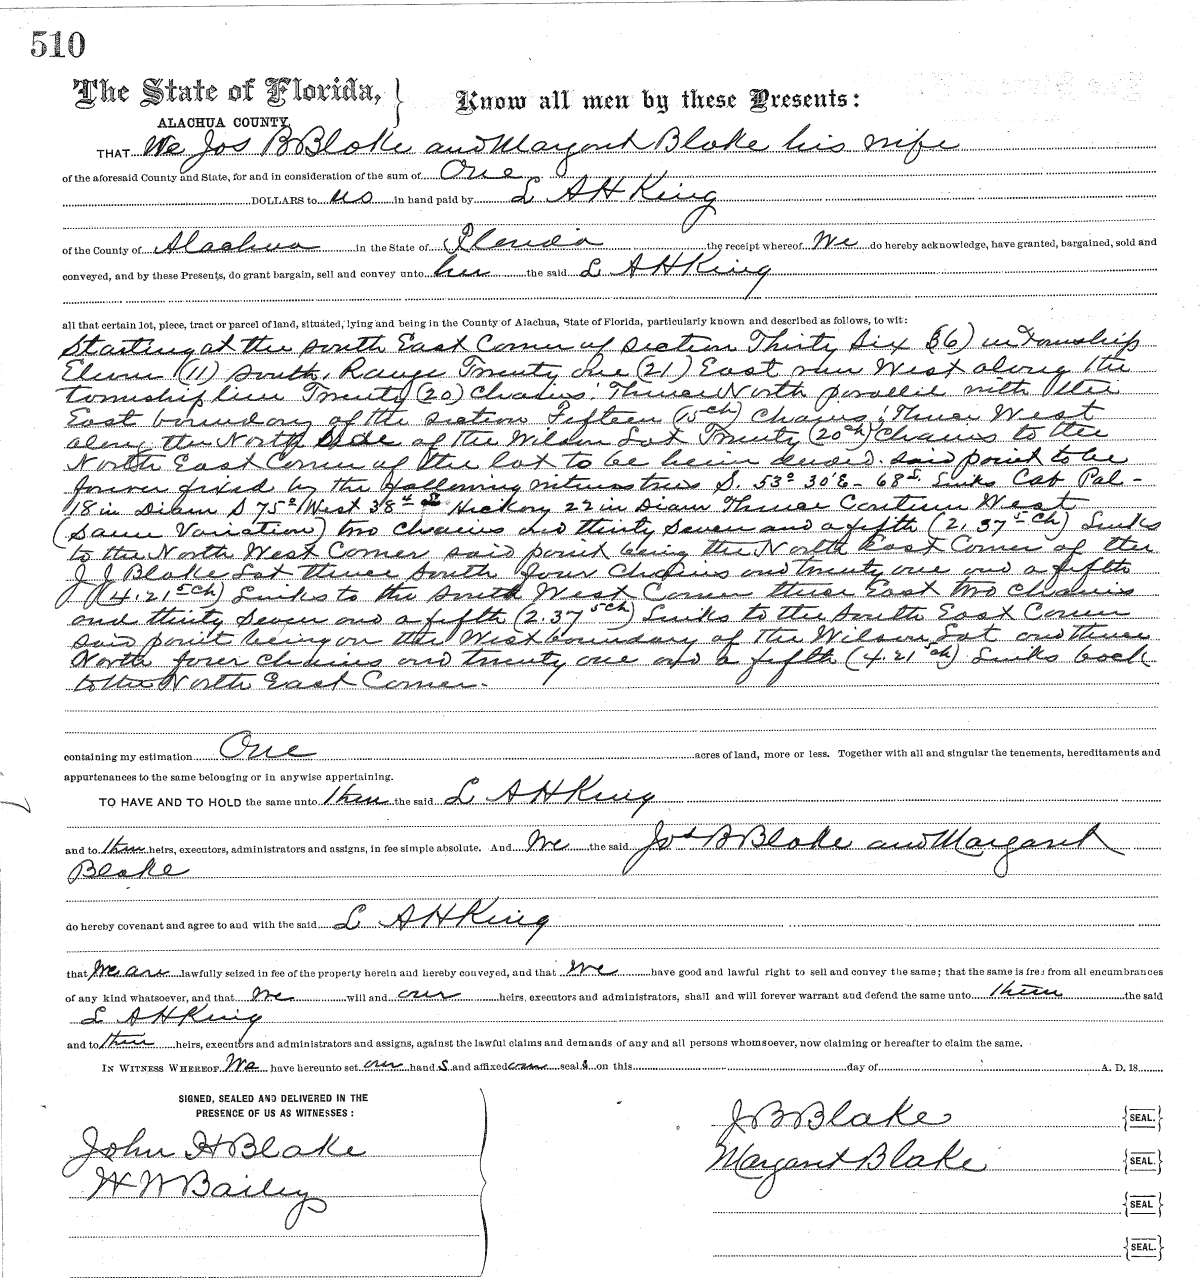 510
The State of Florida,
Know all men by these Presents:
ALACHUA COUNTY.
THAT We Jos B Blake and Margaret Blake his wife
of the aforesaid County and State, for and in consideration of the sum of One
DOLLARS to us in hand paid by L A H King
of the County of Alachua in the State of Florida the receipt whereof We do hereby acknowledge, have granted, bargained, sold and
conveyed, and by these Presents, do grant bargain, sell and convey unto her the said L A H King
all that certain lot, piece, tract or parcel of land, situated, lying and being in the County of Alachua, State of Florida, particularly known and described as follows, to wit:
Starting at the South East Corner of Section Thirty Six (36) in Township
Eleven (11) South, Range Twenty one (21) East run West along the
township line Twenty (20) Chains; Thence North parallel with the
East boundary of the section Fifteen (15 ch) Chains; Thence West
along the North Side of the Wilson Lot Twenty (20 ch) Chains to the
North East Corner of the lot to be herein deeded. said point to be
forever fixed by the following witness trees S. 53° 30' E - 68 Links Cab Pal -
18 in Diam S 75° West 38 Hickory 22 in Diam Thence Continue West
(Same Variation) two Chains and thirty Seven and a fifth (2.37 5ch) Links
to the North West Corner said point being the North East Corner of the
J J Blake Lot thence South four Chains and twenty one and a fifth
(4.21 5ch) Links to the South West Corner thence East two Chains
and thirty Seven and a fifth (2.37 5ch) Links to the South East Corner
said point being on the West boundary of the Wilson Lot and thence
North four chains and twenty one and a fifth (4.21 5ch) Links back
to the North East Corner.
containing my estimation One acres of land, more or less. Together with all and singular the tenements, hereditaments and
appurtenances to the same belonging or in anywise appertaining.
TO HAVE AND TO HOLD the same unto them the said L A H King
and to their heirs, executors, administrators and assigns, in fee simple absolute. And We the said Jos B Blake and Margaret
Blake
do hereby covenant and agree to and with the said L A H King
that We are lawfully seized in fee of the property herein and hereby conveyed, and that We have good and lawful right to sell and convey the same; that the same is free from all encumbrances
of any kind whatsoever, and that We will and our heirs, executors and administrators, shall and will forever warrant and defend the same unto them the said
L A H King
and to their heirs, executors and administrators and assigns, against the lawful claims and demands of any and all persons whomsoever, now claiming or hereafter to claim the same.
IN WITNESS WHEREOF We have hereunto set our hand s and affixed our seal s on this day of A. D. 18
SIGNED, SEALED AND DELIVERED IN THE
PRESENCE OF US AS WITNESSES:
J B Blake {SEAL.}
John H Blake
Margaret Blake {SEAL.}
H W Bailey
{SEAL}
{SEAL.}